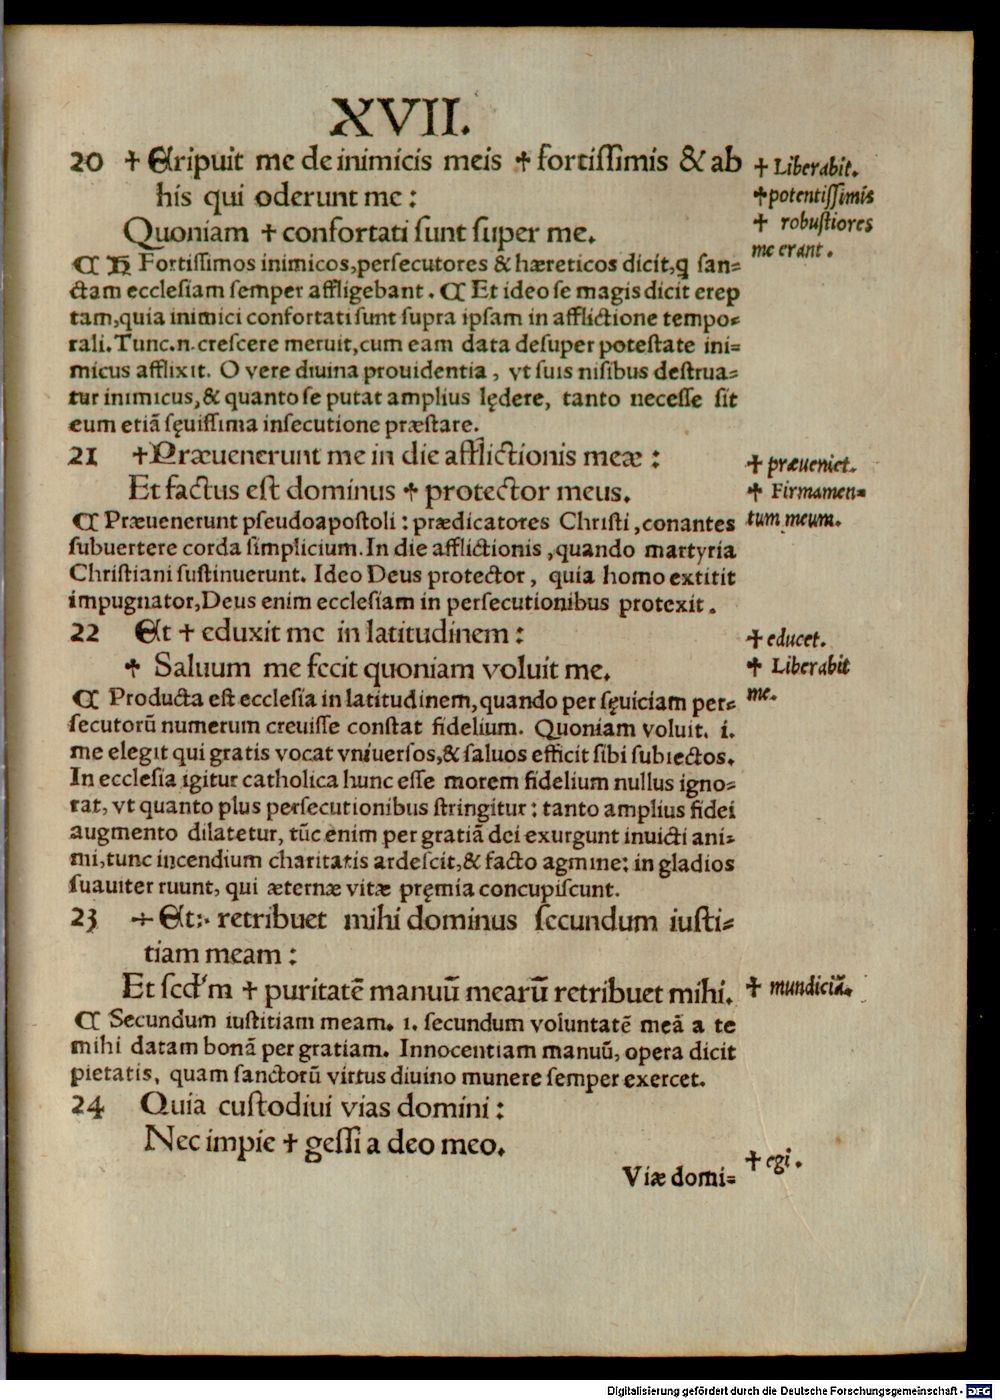 XVII.
20 ✝ Eripuit me de inimicis meis ✝ fortissimis & ab
his qui oderunt me:
Quoniam ✝ confortati sunt super me.
✝ Liberabit.
✝ potentissimis
✝ robustiores
me erant.
¶ H Fortissimos inimicos, persecutores & hæreticos dicit, ꝙ san=
ctam ecclesiam semper affligebant. ¶ Et ideo se magis dicit erep
tam, quia inimici confortati sunt supra ipsam in afflictione tempo=
rali. Tunc .n. crescere meruit, cum eam data desuper potestate ini=
micus afflixit. O vere diuina prouidentia, vt suis nisibus destrua=
tur inimicus, & quanto se putat amplius lędere, tanto necesse sit
eum etiã sęuissima insecutione præstare.
21 ✝ Præuenerunt me in die afflictionis meæ:
Et factus est dominus ✝ protector meus.
✝ præueniet.
✝ Firmamen=
tum meum.
¶ Præuenerunt pseudoapostoli: prædicatores Christi, conantes
subuertere corda simplicium. In die afflictionis, quando martyria
Christiani sustinuerunt. Ideo Deus protector, quia homo extitit
impugnator, Deus enim ecclesiam in persecutionibus protexit.
22 Et ✝ eduxit me in latitudinem:
✝ Saluum me fecit quoniam voluit me.
✝ educet.
✝ Liberabit
me.
¶ Producta est ecclesia in latitudinem, quando per sęuiciam per=
secutorũ numerum creuisse constat fidelium. Quoniam voluit. i.
me elegit qui gratis vocat vniuersos, & saluos efficit sibi subiectos.
In ecclesia igitur catholica hunc esse morem fidelium nullus igno=
rat, vt quanto plus persecutionibus stringitur: tanto amplius fidei
augmento dilatetur, tũc enim per gratiã dei exurgunt inuicti ani=
mi, tunc incendium charitatis ardescit, & facto agmine: in gladios
suauiter ruunt, qui æternæ vitæ pręmia concupiscunt.
23 ÷ Et: retribuet mihi dominus secundum iusti=
tiam meam:
Et scd'm ✝ puritatẽ manuũ mearũ retribuet mihi.
✝ mundiciã.
¶ Secundum iustitiam meam. i. secundum voluntatẽ meã a te
mihi datam bonã per gratiam. Innocentiam manuũ, opera dicit
pietatis, quam sanctorũ virtus diuino munere semper exercet.
24 Quia custodiui vias domini:
Nec impie ✝ gessi a deo meo.
✝ egi.
Viæ domi=
Digitalisierung gefördert durch die Deutsche Forschungsgemeinschaft - DFG